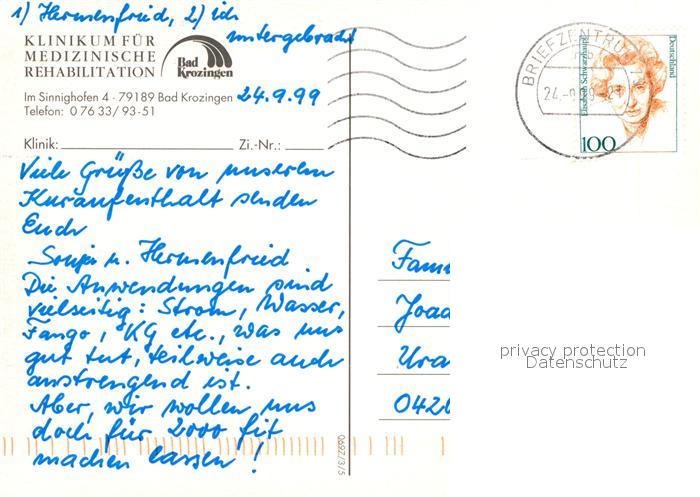 1) Hermenfried, 2) ich
untergebracht
KLINIKUM FÜR
MEDIZINISCHE
REHABILITATION
Bad
Krozingen
Im Sinnighofen 4 · 79189 Bad Krozingen
24.9.99
Telefon: 0 76 33/ 93-51
Klinik: Zi.-Nr.:
Viele Grüße von unserem
Kuraufenthalt senden
Euch
Sonja u. Hermenfried
Die Anwendungen sind
vielseitig: Strom, Wasser,
Fango, KG etc., was uns
gut tut, teilweise auch
anstrengend ist.
Aber, wir wollen uns
doch für 2000 fit
machen lassen!
069Z/3/5
BRIEFZENTRUM
Elisabeth Schwarzhaupt
Deutschland
100
Fam
Joa
Ura
042
privacy protection
Datenschutz